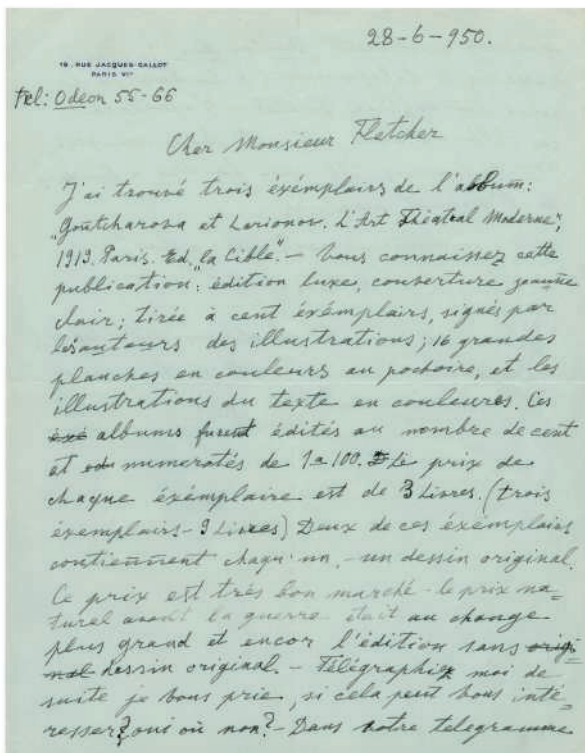 28-6-950.
19, RUE JACQUES CALLOT
PARIS VIe
Tel: Odeon 55-66
Cher Monsieur Fletcher
J'ai trouvé trois éxémplairs de l'album:
"Gontcharova et Larionov. L'Art Théatral Moderne",
1919. Paris. Ed. "la Cible". - Vous connaissez cette
publication: édition luxe, couverture jeaune
clair; tirée à cent éxémplairs, signés par
les auteurs des illustrations; 16 grandes
planches en couleurs au pochoire, et les
illustrations du texte en couleures. Ces
exé albums furent édités au nombre de cent
et numerotés de 1 a 100. Le prix de
chaque éxémplaire est de 3 Livres. (trois
éxemplairs - 9 Livres) Deux de ces éxemplairs
contiennent chaqu'un, - un dessin original.
Ce prix est très bon marché - le prix na=
turel avant la guerre était au change
plus grand et encor l'édition sans origi-
nal dessin original. - Télégraphiez moi de
suite je vous prie, si cela peut vous inté=
resser? oui où non? - Dans votre telegramme